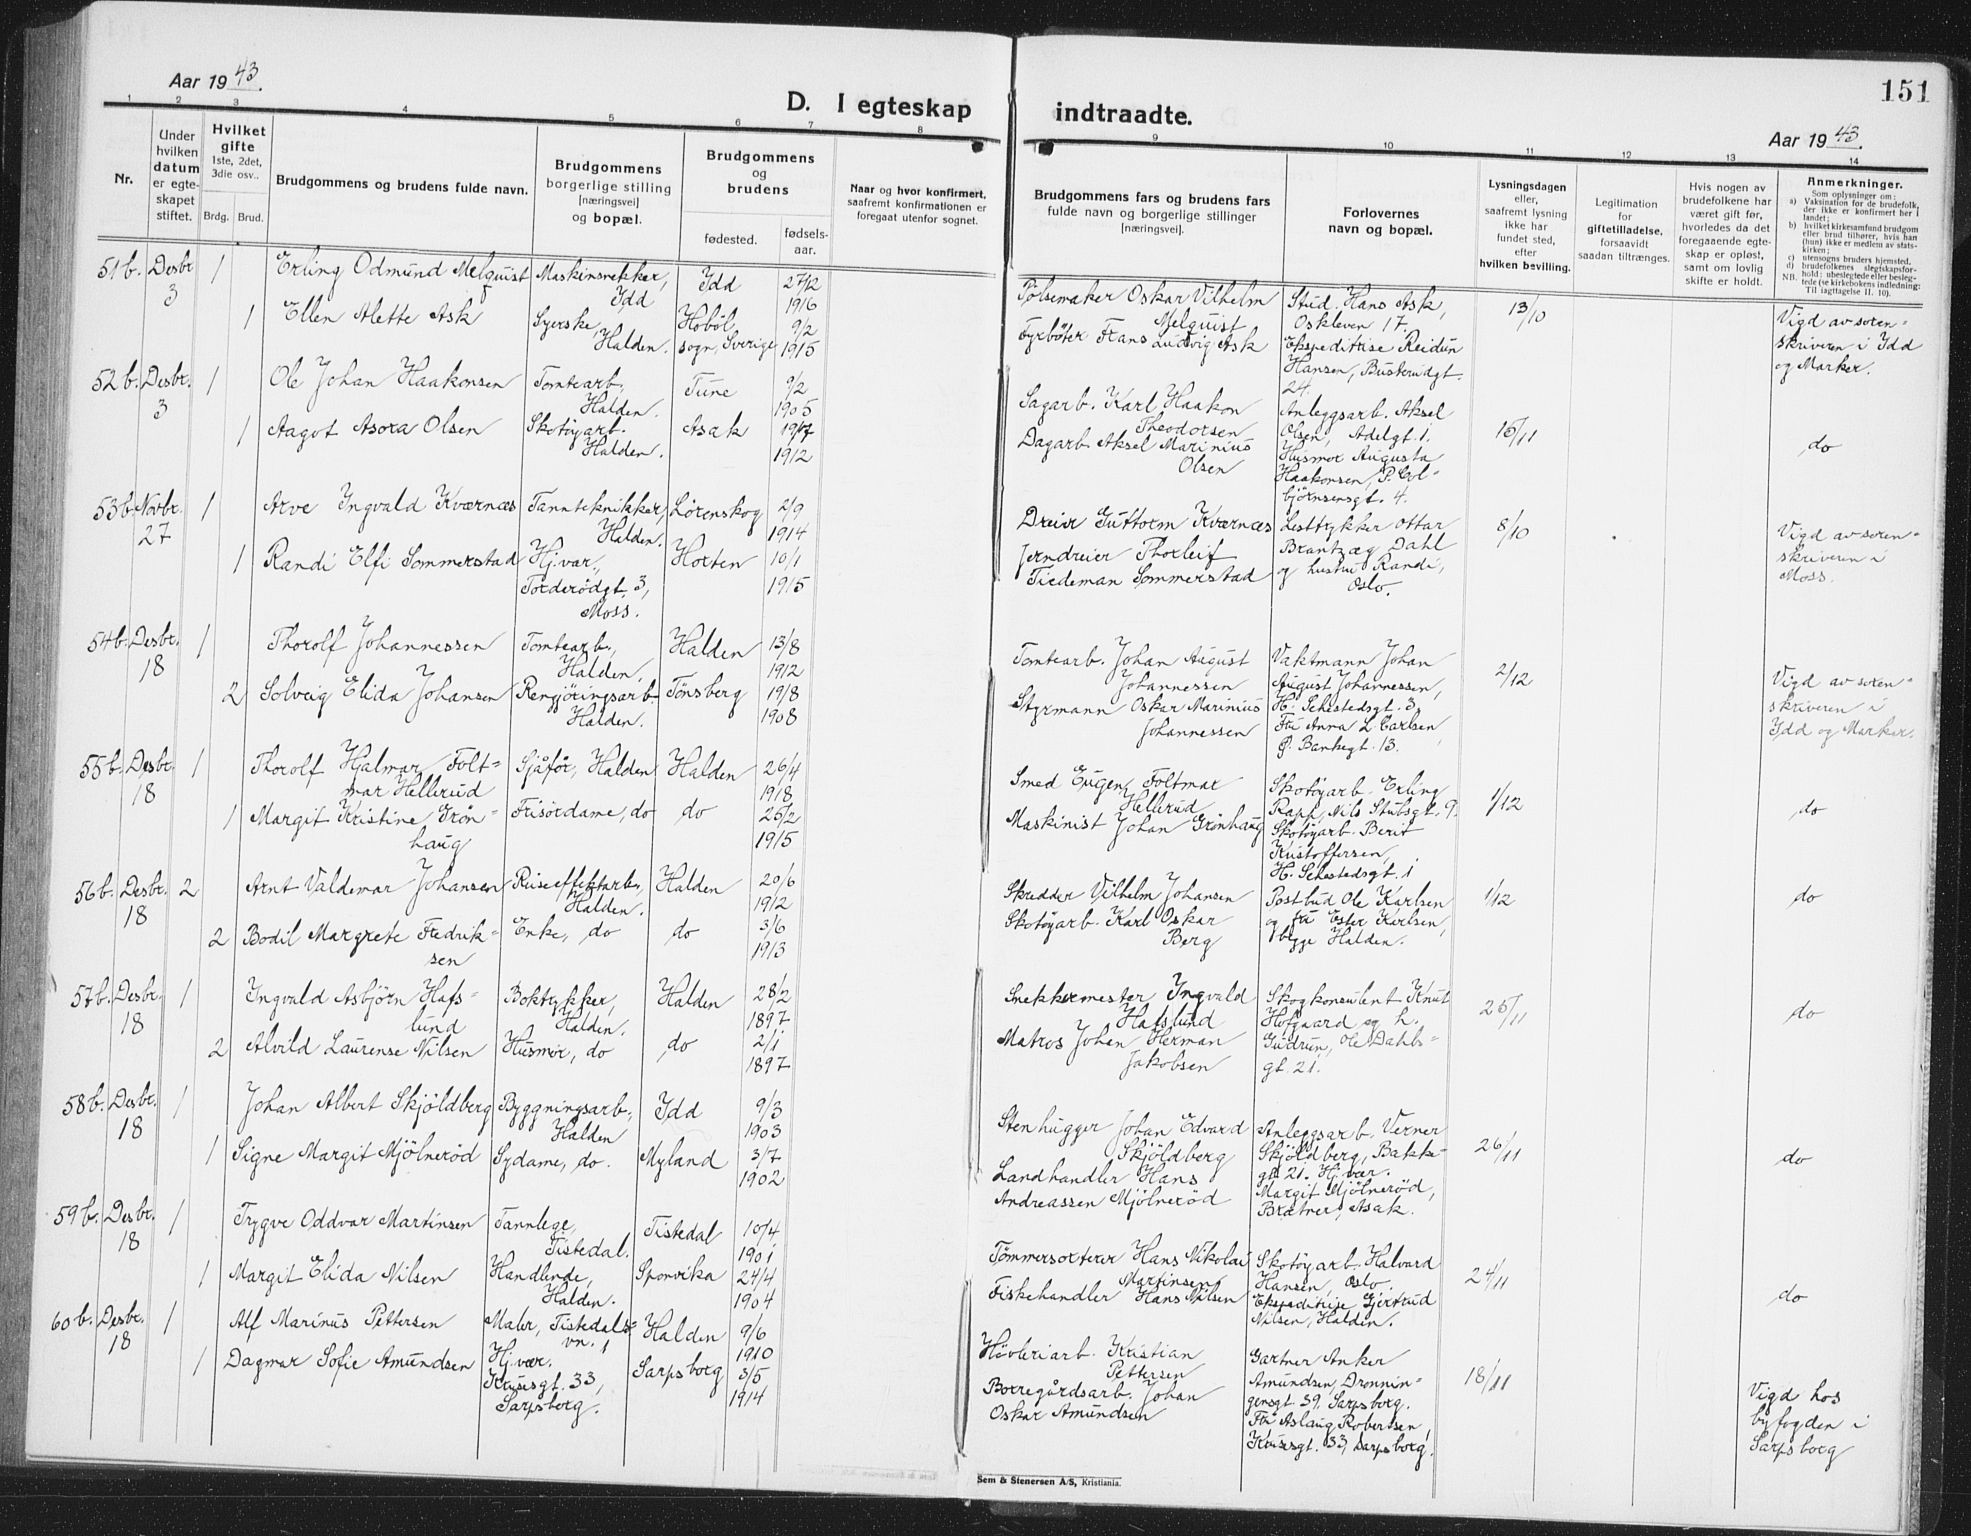 Aar 1943.
D. I egteskap indtraadte.
151
Aar 1943.
1 2 3 4 5 6 7 8 9 10 11 12 13 14
Nr.
Under
hvilken
datum
er egte-
skapet
stiftet.
Hvilket
gifte
1ste, 2det,
3die osv..
Brdg. Brud.
Brudgommens og brudens fulde navn.
Brudgommens
borgerlige stilling
[næringsvei]
og bopæl.
Brudgommens
og
brudens
fødested.
fødsels-
aar.
Naar og hvor konfirmert,
saafremt konfirmationen er
foregaat utenfor sognet.
Brudgommens fars og brudens fars
fulde navn og borgerlige stillinger
[næringsvei].
Forlovernes
navn og bopæl.
Lysningsdagen
eller,
saafremt lysning
ikke har
fundet sted,
efter
hvilken bevilling.
Legitimation
for
giftetilladelse,
forsaavidt
saadan tiltrænges.
Hvis nogen av
brudefolkene har
været gift før,
hvorledes da det
foregaaende egte-
skap er opløst,
samt om lovlig
skifte er holdt.
Anmerkninger.
Som oplysninger om:
a) Vaksination for de brudefolk,
der ikke er konfirmert her i
landet;
b) hvilket kirkesamfund brudgom
eller brud tilhører, hvis han
(hun) ikke er medlem av stats-
kirken;
c) utensogns bruders hjemsted.
d) brudefolkenes slegtskapsfor-
hold: ubeslegtede eller besleg-
NB. tede (se kirkebokens indledning:
Til iagttagelse II. 10).
51 b. Desbr 1 Erling Odmund Melquist Maskinsnekker, Idd 27/12
3 Idd 1916
1 Ellen Alette Ask Syerske, Höböl 9/2
Halden. sogn, Sverige 1915
Pölsemaker Oskar Vilhelm Stud. Hans Ask, 13/10 Vigd av soren-
Melquist Oskleven 17, skriveren i Idd
Fyrböter Frans Ludvig Ask Ekspeditrise Reidun og Marker.
Hansen, Busterudgt.
24.
52 b. Desbr. 1 Ole Johan Haakonsen Tomtearb. Tune 9/2
3 Halden. 1905
1 Aagot Asora Olsen Skotöyarb. Asak 19/7
Halden. 1912
Sagarb. Karl Haakon Anleggsarb. Aksel
Theodorsen Olsen, Adelgt. 1.
Dagarb. Aksel Marinius Husmor Augusta do
Olsen Haakonsen, P. Col-
björnsensgt. 4.
53 b. Novbr. 1 Arve Ingvald Kværnæs Tanntekniker, Lörenskog 2/9
27 Halden. 1914
1 Randi Elfi Sommerstad Hj.vær., Horten 10/1
Torderödgt. 3, 1915
Moss.
Dreier Guttorm Kværnæs Listtrykker Ottar 8/10 Vigd av soren-
Jerndreier Thorleif Brantzæg Dahl skriveren i
Tiedeman Sommerstad og hustru Randi, Moss.
Oslo.
54 b. Desbr. 1 Thorolf Johannessen Tomtearb., Halden 13/8
18 Halden, 1912
2 Solveig Elida Johansen Rengjöringsarb. Tönsberg 19/8
Halden. 1908
Tomtearb. Johan August Vaktmann Johan 2/12 Vigd av soren-
Johannessen August Johannessen, skriveren i
Styrmann Oskar Marinius H. Sehestedsgt. 3, Idd og Marker.
Johannessen Fru Anna L. Carlsen,
P. Bankegt. 13.
55 b. Desbr. 1 Thorolf Hjalmar Folt- Sjåför, Halden Halden 26/4
18 mar Hellerud 1918
1 Margit Kristine Grön- Frisördame, do do 26/2
haug 1915
Smed Eugen Foltmar Skotöyarb. Erling 1/12
Hellerud Rapp, Nils Stubsgt. 9. do
Maskinist Johan Grönhaug Skotöyarb. Berit
Kristoffersen,
H. Sehestedsgt. 1
56 b. Desbr. 2 Arnt Valdemar Johansen Reiseeffektarb., Halden 20/6
18 Halden. 1912
2 Bodil Margrete Fredrik- Enke, do do 3/6
sen 1913
Skredder Vilhelm Johansen Postbud Ole Karlsen 1/12 do
Skotöyarb. Karl Oskar og fru Ester Karlsen,
Berg begge Halden.
57 b. Desbr. 1 Ingvald Asbjörn Hafs- Boktrykker, Halden 28/2
18 lund Halden. 1897
2 Alvild Laurense Nilsen Husmor, do do 2/1
1897
Snekkermester Ingvald Skogkonsulent Knut
Hafslund Hofgaard og h. do
Matros Johan Herman Gudrun, Ole Dahls-
Jakobsen gt. 21.
58 b. Desbr. 1 Johan Albert Skjöldberg Byggningsarb., Idd 9/3
18 Halden 1903
1 Signe Margit Mjölneröd Sydame, do. Myland 3/7
1902
Stenhugger Johan Edvard Anleggsarb. Verner 26/11
Skjöldberg Skjöldberg, Bakke- do
Landhandler Hans gt. 21. Hj.vær.
Andreassen Mjölneröd Margit Mjölneröd,
Asak.
59 b. Desbr. 1 Trygve Oddvar Martinsen Tannlege, Tistedal 10/4
18 Tistedal. 1901
1 Margit Elida Nilsen Handlende, Sponvika 24/4
Halden. 1904
Tömmersorterer Hans Nikolai Skotöyarb. Halvard 24/11
Martinsen Hansen, Oslo, do
Fiskehandler Hans Nilsen Ekspeditrise Gjertrud
Nilsen, Halden.
60 b. Desbr. 1 Alf Marinus Pettersen Maler, Tistedals- Halden 9/6
18 vn. 1, 1910
1 Dagmar Sofie Amundsen Hj.vær. Sarpsborg 3/5
Krusesgt. 33, 1914
Sarpsborg.
Hövleriarb. Kristian Gartner Anker 18/11 Vigd hos
Pettersen Amundsen, Dronnin- byfogden i
Borregårdsarb. Johan gensgt. 39, Sarpsborg. Sarpsborg
Oskar Amundsen Fru Aslaug Robertsen,
Krusesgt. 33, Sarpsborg.
Sem & Stenersen A/S, Kristiania.